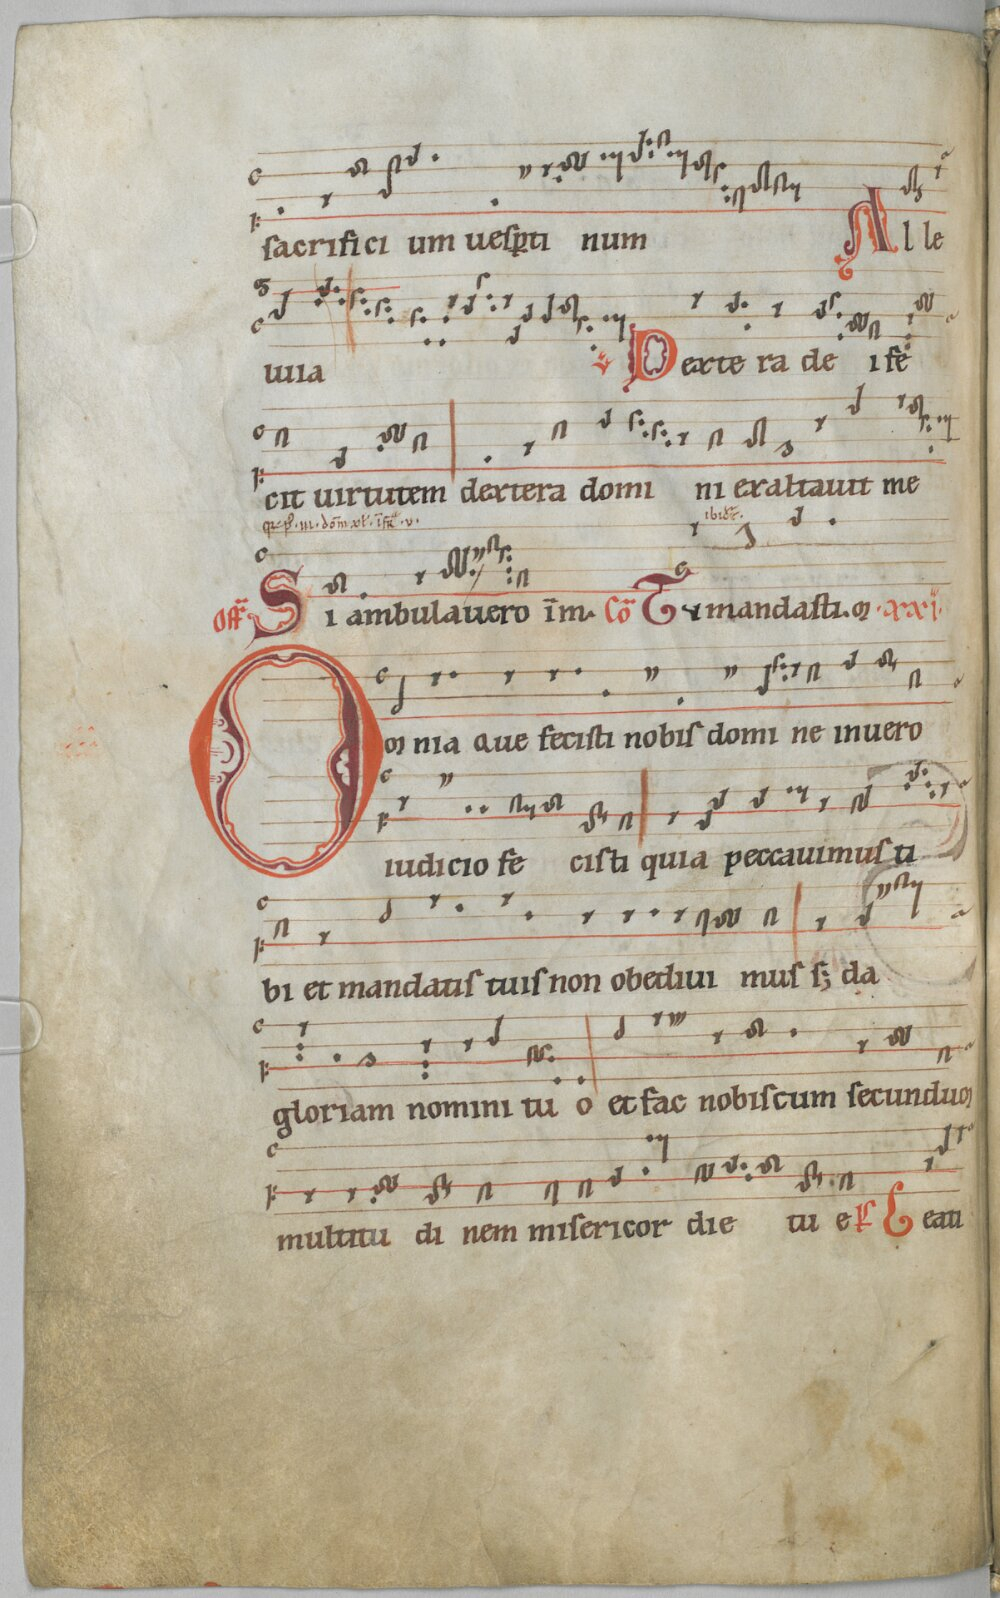 sacrifici um uesꝑti num Al le
uıia ℣ Dextera de i fe
cit uirtutem dextera domi ni exaltauit me
Off̄ Si ambulauero īm. Cō Tu mandasti. ꝶ .xxi.
Omnia que fecisti nobis domi ne inuero
iudicio fe cisti quia peccauimus ti
bi et mandatis tuis non obediui mus sꝫ da
gloriam nomini tu o et fac nobiscum secundum
multitu di nem misericor die tu e Beati